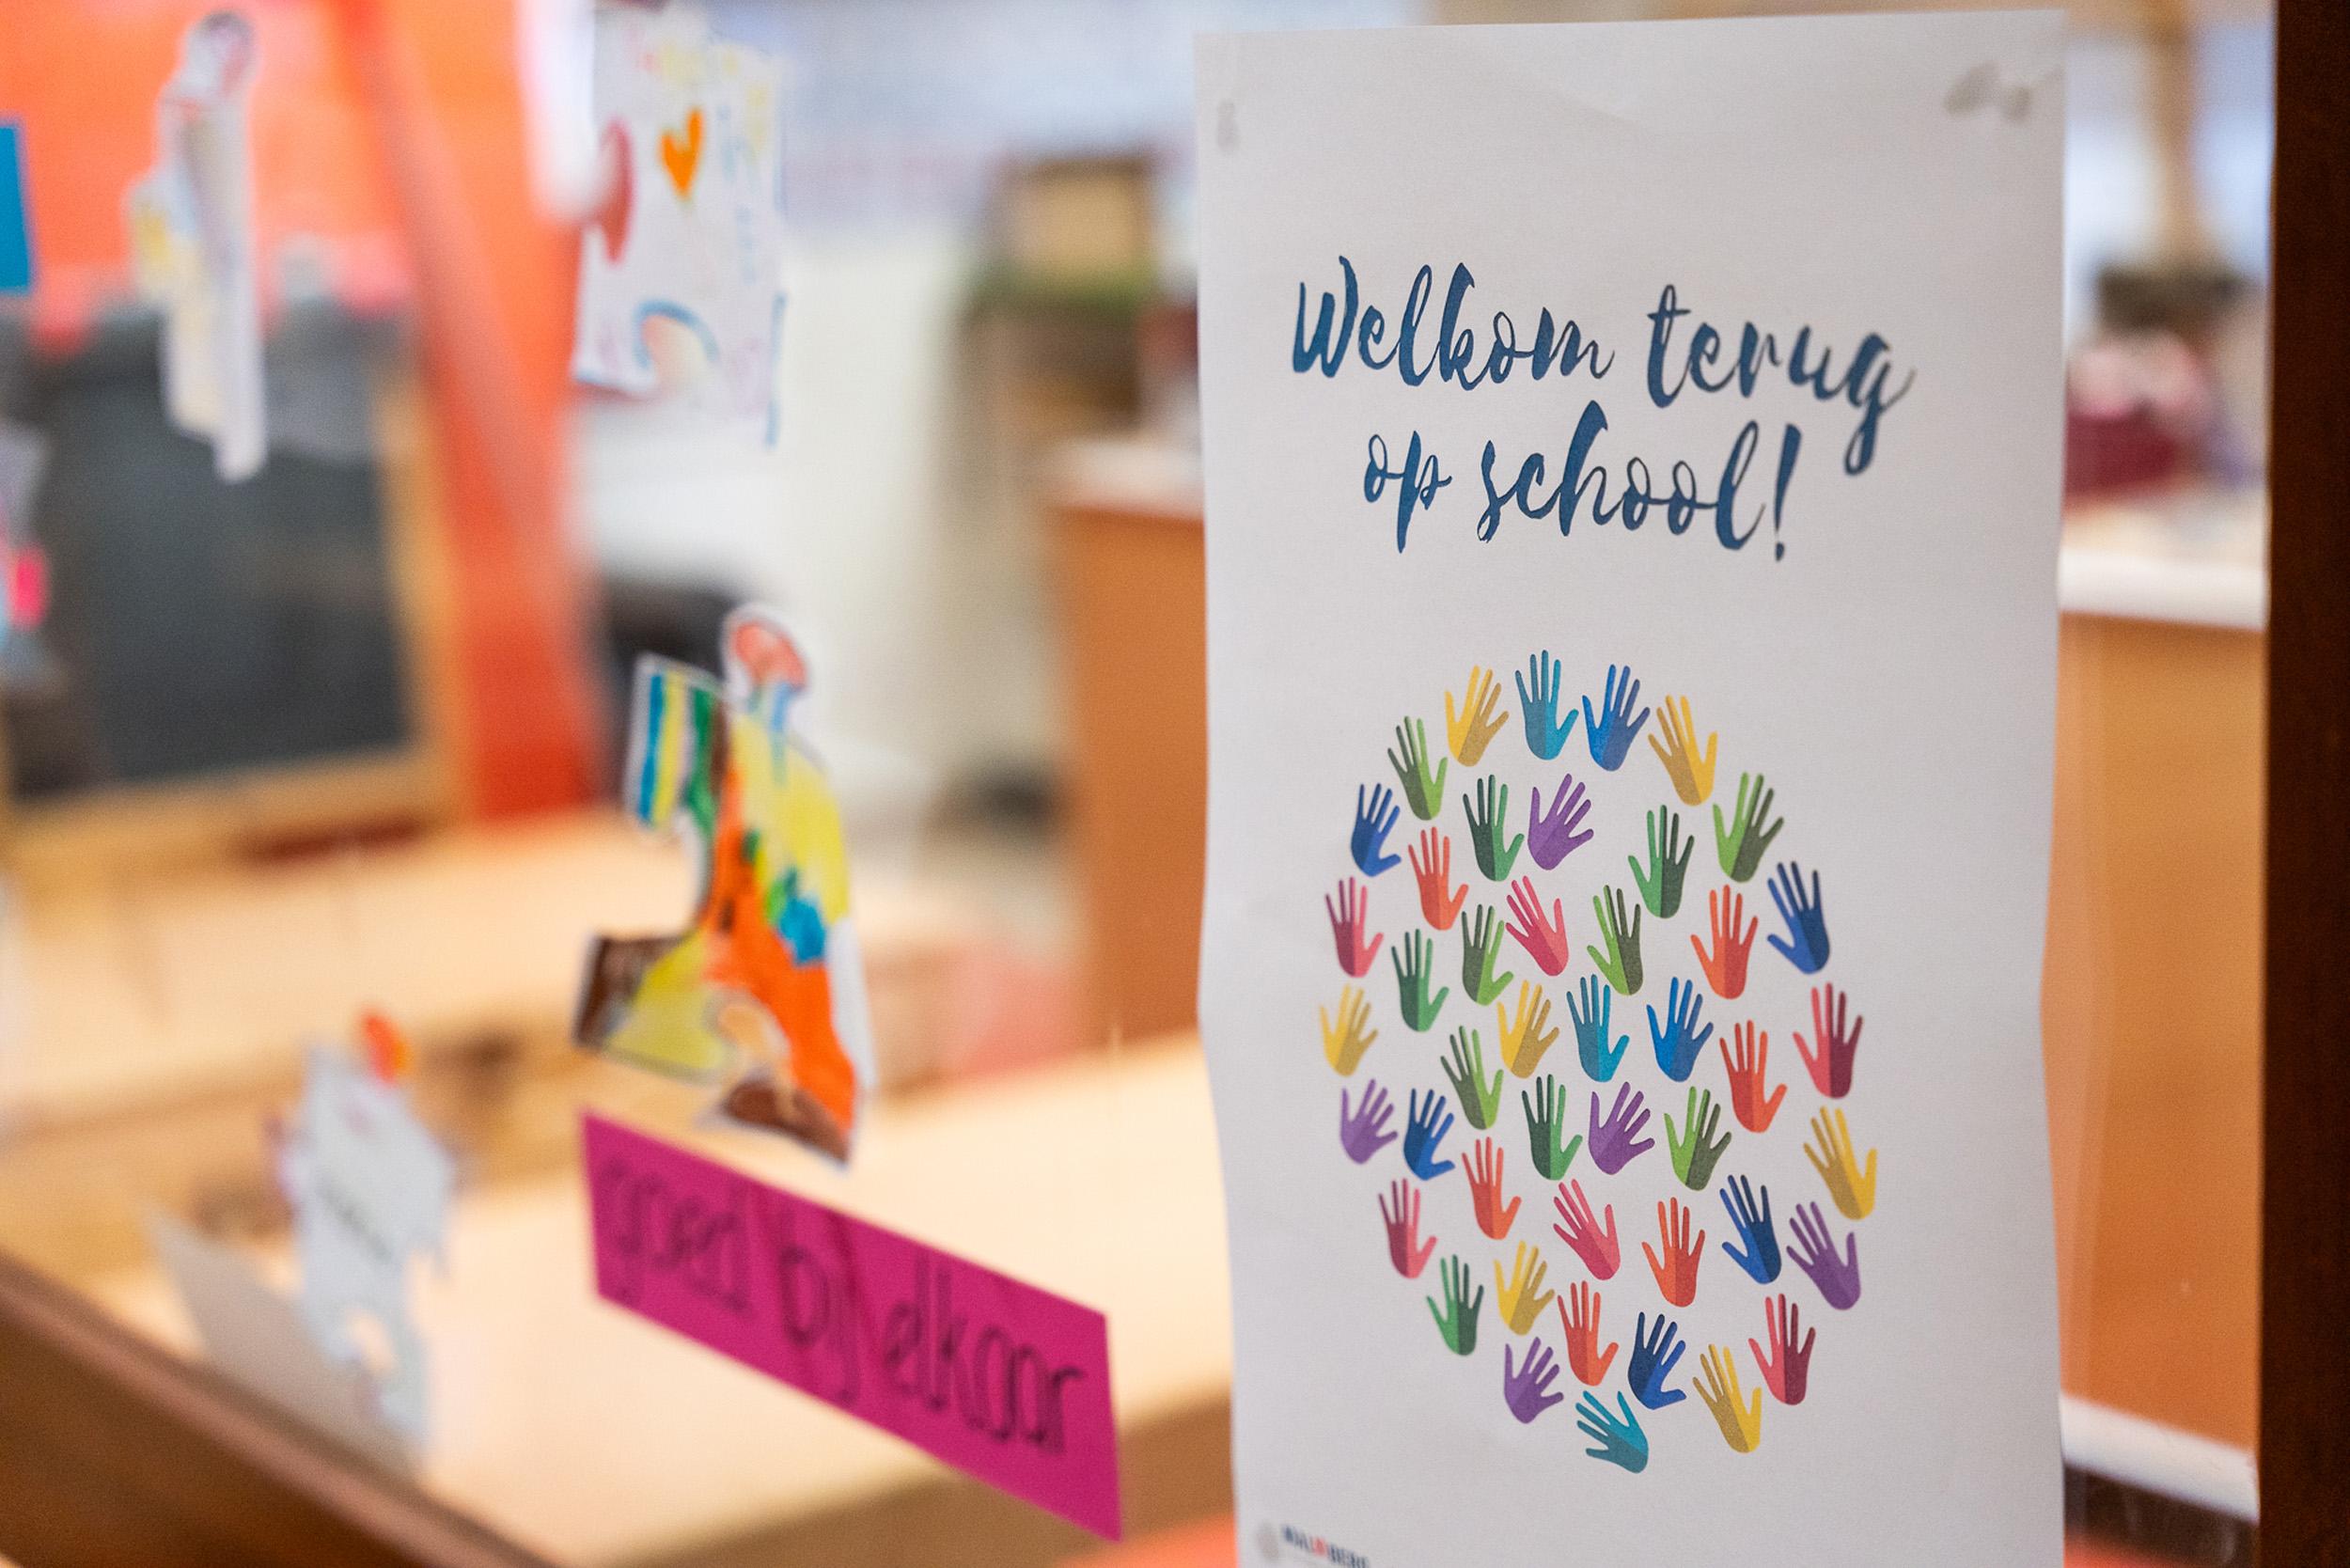 Welkom terug
op school!
goed bij elkaar